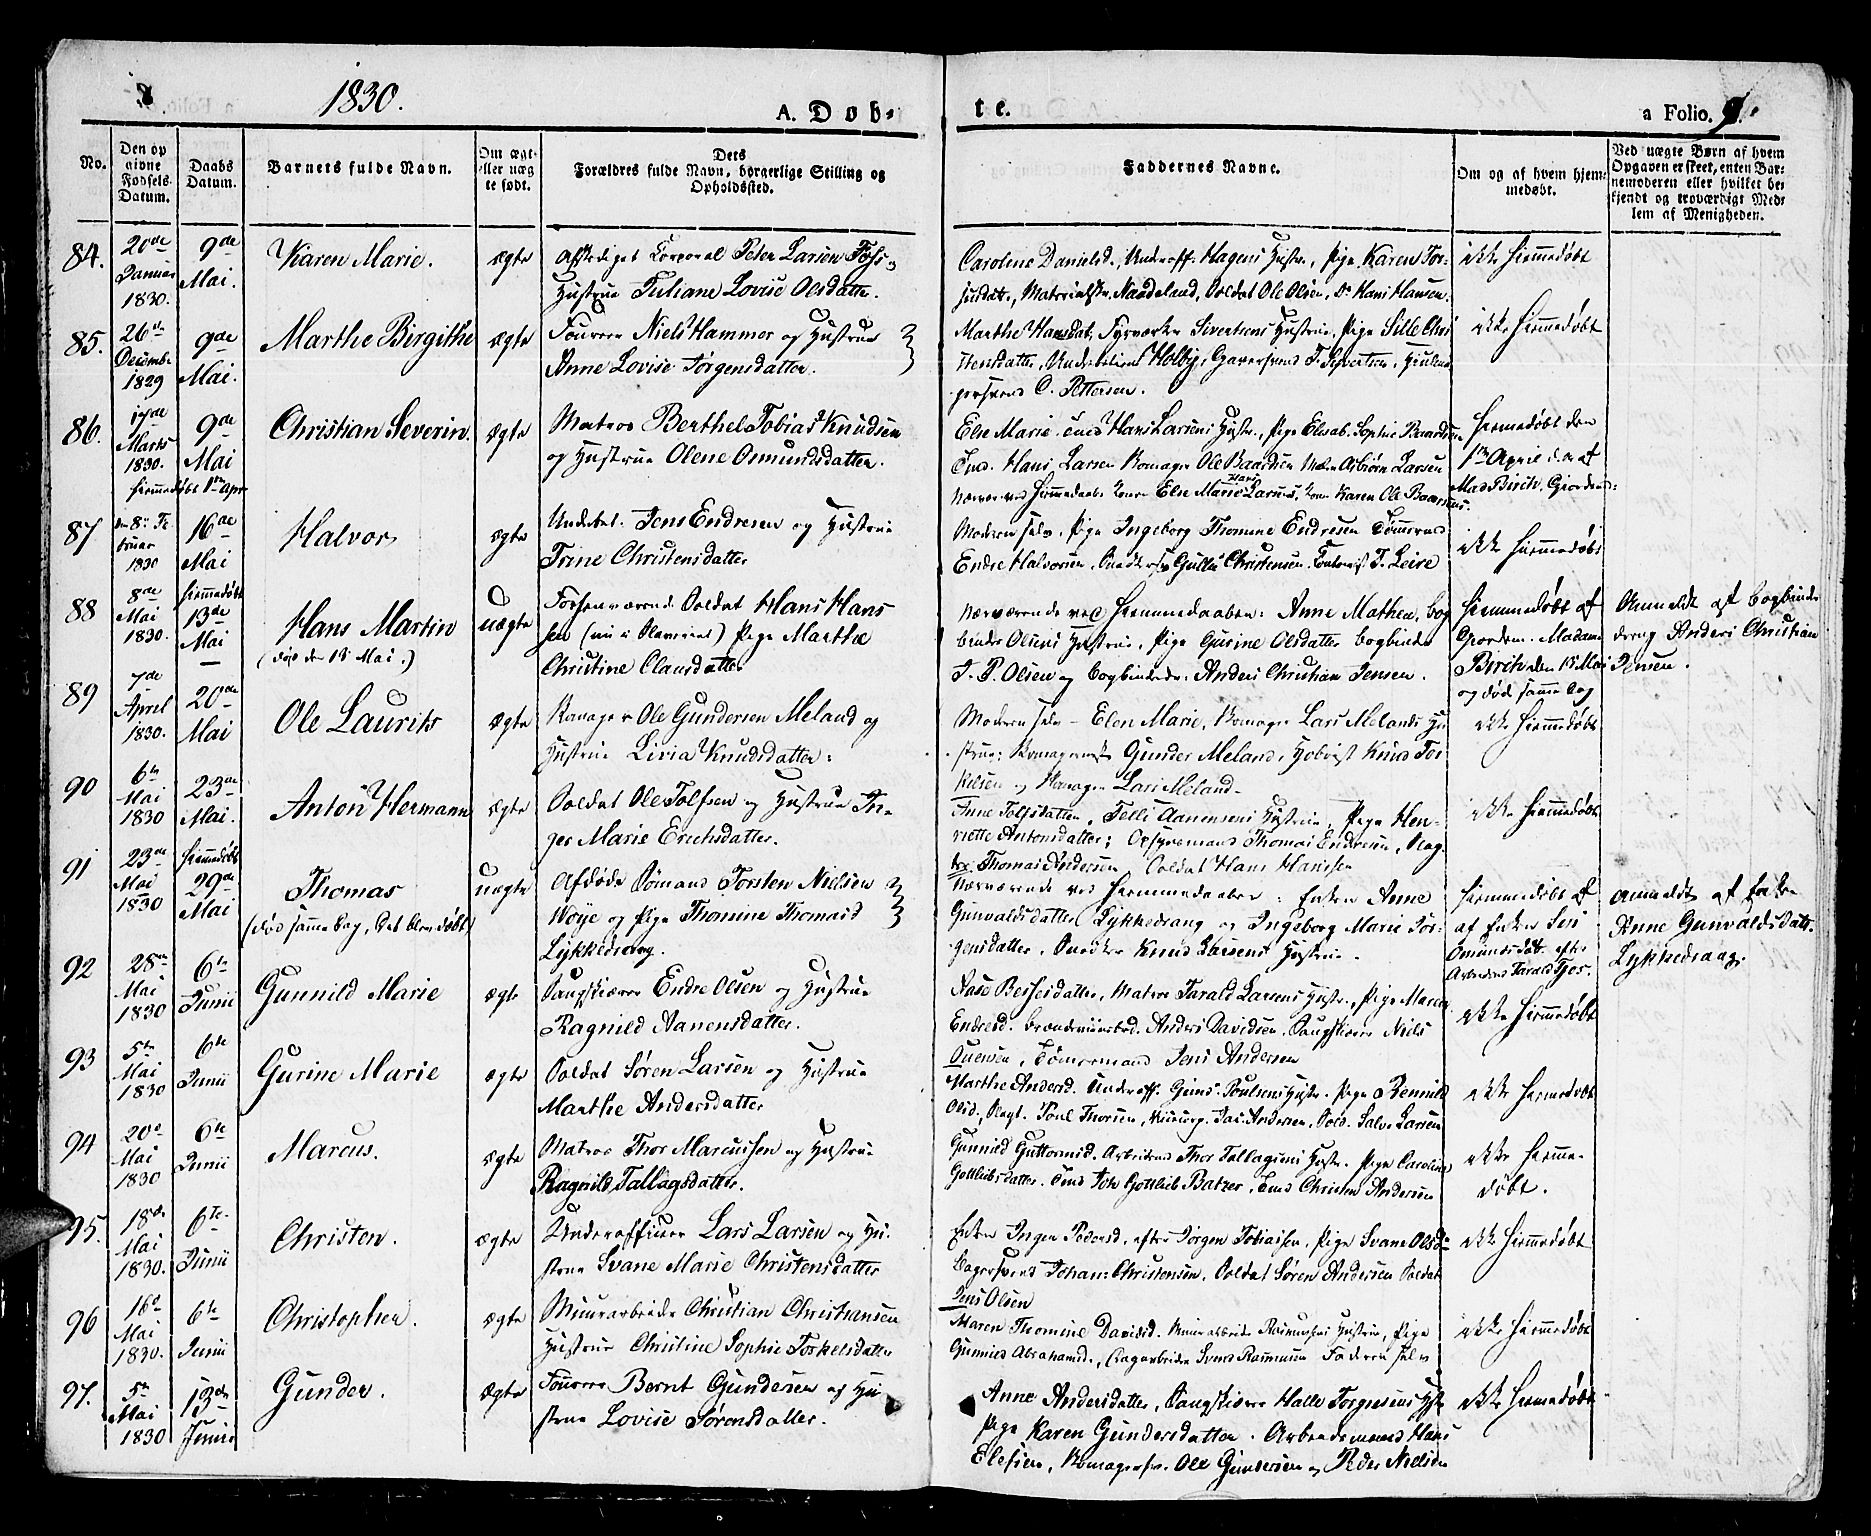 1830.
A. Døb-
te.
a Folio. 9.
No.
Den op
givne
Fødsels-
Datum.
Daabs
Datum.
Barnets fulde Navn.
Om ægte
eller uæg
te født.
Dets
Forældres fulde Navn, borgerlige Stilling og
Opholdssted.
Faddernes Navne.
Om og af hvem hjem-
medøbt.
Ved uægte Børn af hvem
Opgaven er skeet, enten Bar-
nemoderen eller hvilket be-
kjendt og troværdigt Med-
lem af Menigheden.
84.
20de
Januar
1830.
9de
Mai.
Karen Marie.
ægte
Afskediget Corporal Peter Larsen
Hustrue Juliane Lovise Olsdatter.
Caroline Danielsd., Underoff. Hagens Hustr., Pige Karen Tor-
Soldat Ole Olsen, Do Hans Hansen.
ikke hiemmedøbt
85.
26de
Decembr
1829
9de
Mai.
Marthe Birgithe
ægte
Fourer Niels Hammer og Hustrue
Anne Lovise Jørgensdatter.
Marthe Hansdat, Fyrværker Sivertsens Hustrue, Pige Sille Chri
stensdatter, Holby, T. Syvertsen,
C. Pettersen.
ikke hiemmedøbt
86.
17de
Marts
1830.
hiemmedøbt 1ste Apr
9de
Mai
Christian Severin.
ægte
Matros Berthel Tobias Knudsen
og Hustrue Olene Osmundsdatter.
Else Marie Hans Larsens Hustr., Pige Elisab. Sophie Baardsen
Hans Larsen Ole Baardsen Asbiørn Larsen
Nærver. ved Hiemmedaaben Else Marie Hans Larsens, Karen Ole Baardsens.
hiemmedøbt den
1ste April d. A. af
Mad Birch, Giordem:
87
den 8de Fe
bruar
1830
16de
Mai
Halvor
ægte
Underbet. Jens Endresen og Hustrue
Trine Christensdatter
Moderen selv, Pige Ingeborg Thomine Endresen Tømmermd
Endre Halvorsen, Gulle Christensen, T. Leire
ikke hiemmedøbt
88
8de
Mai
1830.
hiemmedøbt
13de
Mai
Hans Martin
(død den 13 Mai.)
uægte
Forhenværende Soldat Hans Hans
sen (nu i Slaveriet) Pige Marthe
Christine Clausdatter
Nærværende ved Hiemmedaaben: Anne Mathea, bog
binder Olsens Hustrue, Pige Gurine Olsdatter bogbinder
J. P. Olsen og bogbinder: Anders Christian Jensen.
hiemmedøbt af
Giordem. Madame
Birch den 13 Mai
og død samme Dag
Anmeldt af bogbinder
Anders Christian
Jensen.
89
7de
April
1830.
20de
Mai
Ole Laurits
ægte
Ole Gundersen Meland og
Hustrue Livia Knudsdatter.
Moderen selv – Elen Marie, Lars Melands Hu
strue; Gunder Meland, Knud Tor
kelsen og Lars Meland –
ikke hiemmedøbt
90
6te
Mai
1830
23de
Mai.
Anton Hermann
ægte
Soldat Ole Tolfsen og Hustrue In-
ger Marie Erichsdatter.
Anne Tolfsdatter, Aanensens Hustrue, Pige Hen-
riette Antonsdatter; Opsynsmand Thomas Endresen,
Thomas Andersen Soldat Hans Hansen
ikke hiemmedøbt
91
23de
Mai
1830
hiemmedøbt
29de
Mai
Thomas
(død samme Dag, det blev døbt)
uægte
Afdøde Sømand Torsten Nielsen
Woye og Pige Thomine Thomasd
Lykkedrang.
Nærværende ved Hiemmedaaben: Enken Anne
Gunvaldsdatter Lykkedrang og Ingeborg Marie Jør-
gensdatter, Snedker Knud Larsens Hustrue.
hiemmedøbt af
af Enken Siri
Omundsdat. efter
Tarald
Anmeldt af Enken
Anne Gunvaldsdatt.
Lykkedrang.
92
28de
Mai
1830
6te
Junii
Gunnild Marie
ægte
Saugskiærer Endre Olsen og Hustrue
Ragnild Aanensdatter.
Aase Bessesdatter, Matros Tarald Larsens Hustr., Pige Maren
Endresd. Anders Davidsen, Saugskiærer Niels
Svensen, Tømmermand Jens Andersen
ikke hiemmedøbt
93
5te
Mai
1830
6te
Junii
Gurine Marie
ægte
Soldat Søren Larsen og Hustrue
Marthe Andersdatter
Marthe Andersd. Underoff. Poulsens Hustr. Pige Bennild
Olsd., Poul Thorsen, Andersen, Sold. Salve Larsen
ikke hiemmedøbt
94
20de
Mai
1830
6te
Junii
Marcus.
ægte
Matros Thor Marcussen og Hustrue
Ragnild Tallagsdatter.
Gunnild Guttormsd. Arbeidsm Thor Tallagsens Hustr. Pige Caroline
Gottliebsdatter. Joh. Gottlieb Balzer, Christen Andersen
ikke hiemme-
døbt.
95.
18de
Mai
1830.
6te
Junii
Christen.
ægte
Underofficeer Lars Larsen og Hu-
strue Svane Marie Christensdatter
Enken Inger Pedersd. efter Jørgen Tobiasen, Pige Svane Olsd.
Bagersvend Johan Christensen, Soldat Søren Andersen Soldat
Jens Olsen
ikke hiemmedøbt
96
16de
Mai
1830.
6te
Junii
Christopher.
ægte
Muurarbeider Christian Christiansen
Hustrue Christine Sophie Torkelsdatter
Maren Thomine Davidsd. Muurarbeider Rasmussens Hustrue, Pige
Gunnild Abrahamsd., Svend Rasmussen Faderen selv
ikke hiemmedøbt
97.
5te
Mai
1830
13de
Junii
Gunder.
ægte
Fourer Bernt Gundersen og Hu
strue Lovise Sørensdatter.
Anne Andersdatter, Saugskiærer Halle Torgersens Hustr
Pige Karen Gundersdatter. Arbeidsmand Hans
Elefsen, Ole Gundersen og Peder Nielsen
ikke hiemmedøbt